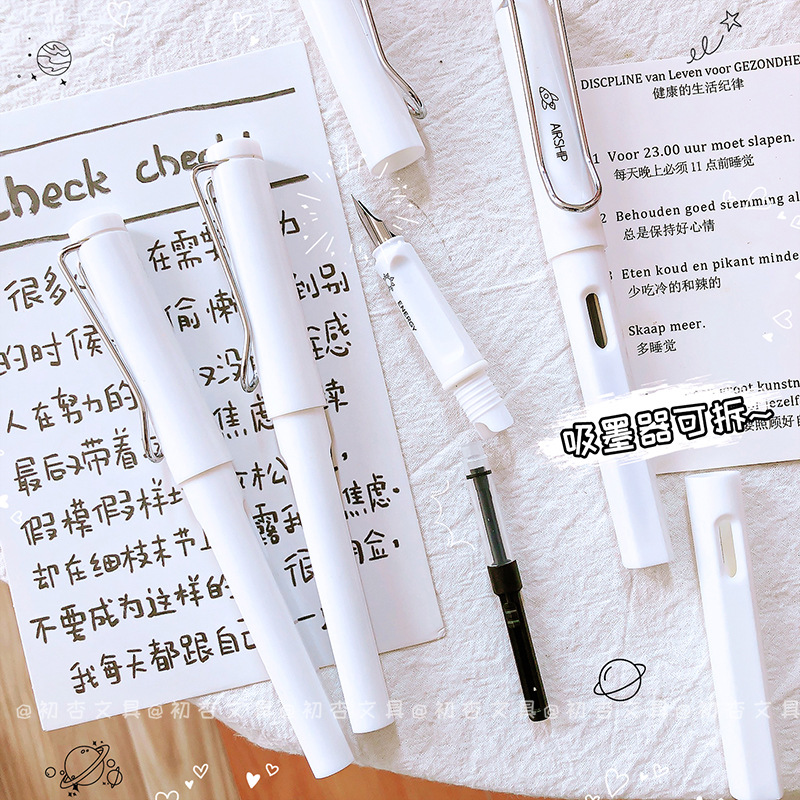 check check
很多 在需要 为
的时候 偷懒 到别
人在努力的 又没 感
最后又带着 焦虑 续
假模假样 松
却在细枝末节上 露 焦虑.
不要成为这样的 很
我每天都跟自己 一
AIRSHIP
ENERGY
DISCPLINE van Leven voor GEZONDHE
健康的生活纪律
1 Voor 23.00 uur moet slapen.
每天晚上必须 11 点前睡觉
2 Behouden goed stemming al
总是保持好心情
3 Eten koud en pikant minde
少吃冷的和辣的
Skaap meer.
多睡觉
groot kunstn
ezelf
要照顾好自
吸墨器可拆~
@初杏文具@初杏文具@初杏文具@初杏文具@初杏文具@初杏文具